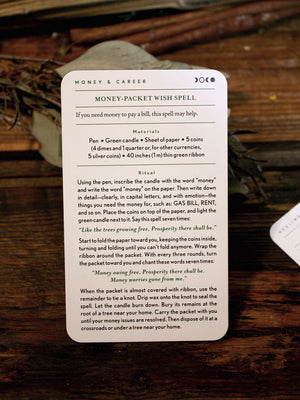 MONEY & CAREER
MONEY-PACKET WISH SPELL
If you need money to pay a bill, this spell may help.
Materials
Pen • Green candle • Sheet of paper • 5 coins
(4 dimes and 1 quarter or, for other currencies,
5 silver coins) • 40 inches (1 m) thin green ribbon
Ritual
Using the pen, inscribe the candle with the word "money"
and write the word "money" on the paper. Then write down
in detail—clearly, in capital letters, and with emotion—the
things you need the money for, such as: GAS BILL, RENT,
and so on. Place the coins on top of the paper, and light the
green candle next to it. Say this spell seven times:
"Like the trees growing free, Prosperity there shall be."
Start to fold the paper toward you, keeping the coins inside,
turning and folding until you can't fold anymore. Wrap the
ribbon around the packet. With every three rounds, turn
the packet toward you and chant these words seven times:
"Money owing free, Prosperity there shall be.
Money worries gone from me."
When the packet is almost covered with ribbon, use the
remainder to tie a knot. Drip wax onto the knot to seal the
spell. Let the candle burn down. Bury its remains at the
root of a tree near your home. Carry the packet with you
until your money issues are resolved. Then dispose of it at a
crossroads or under a tree near your home.